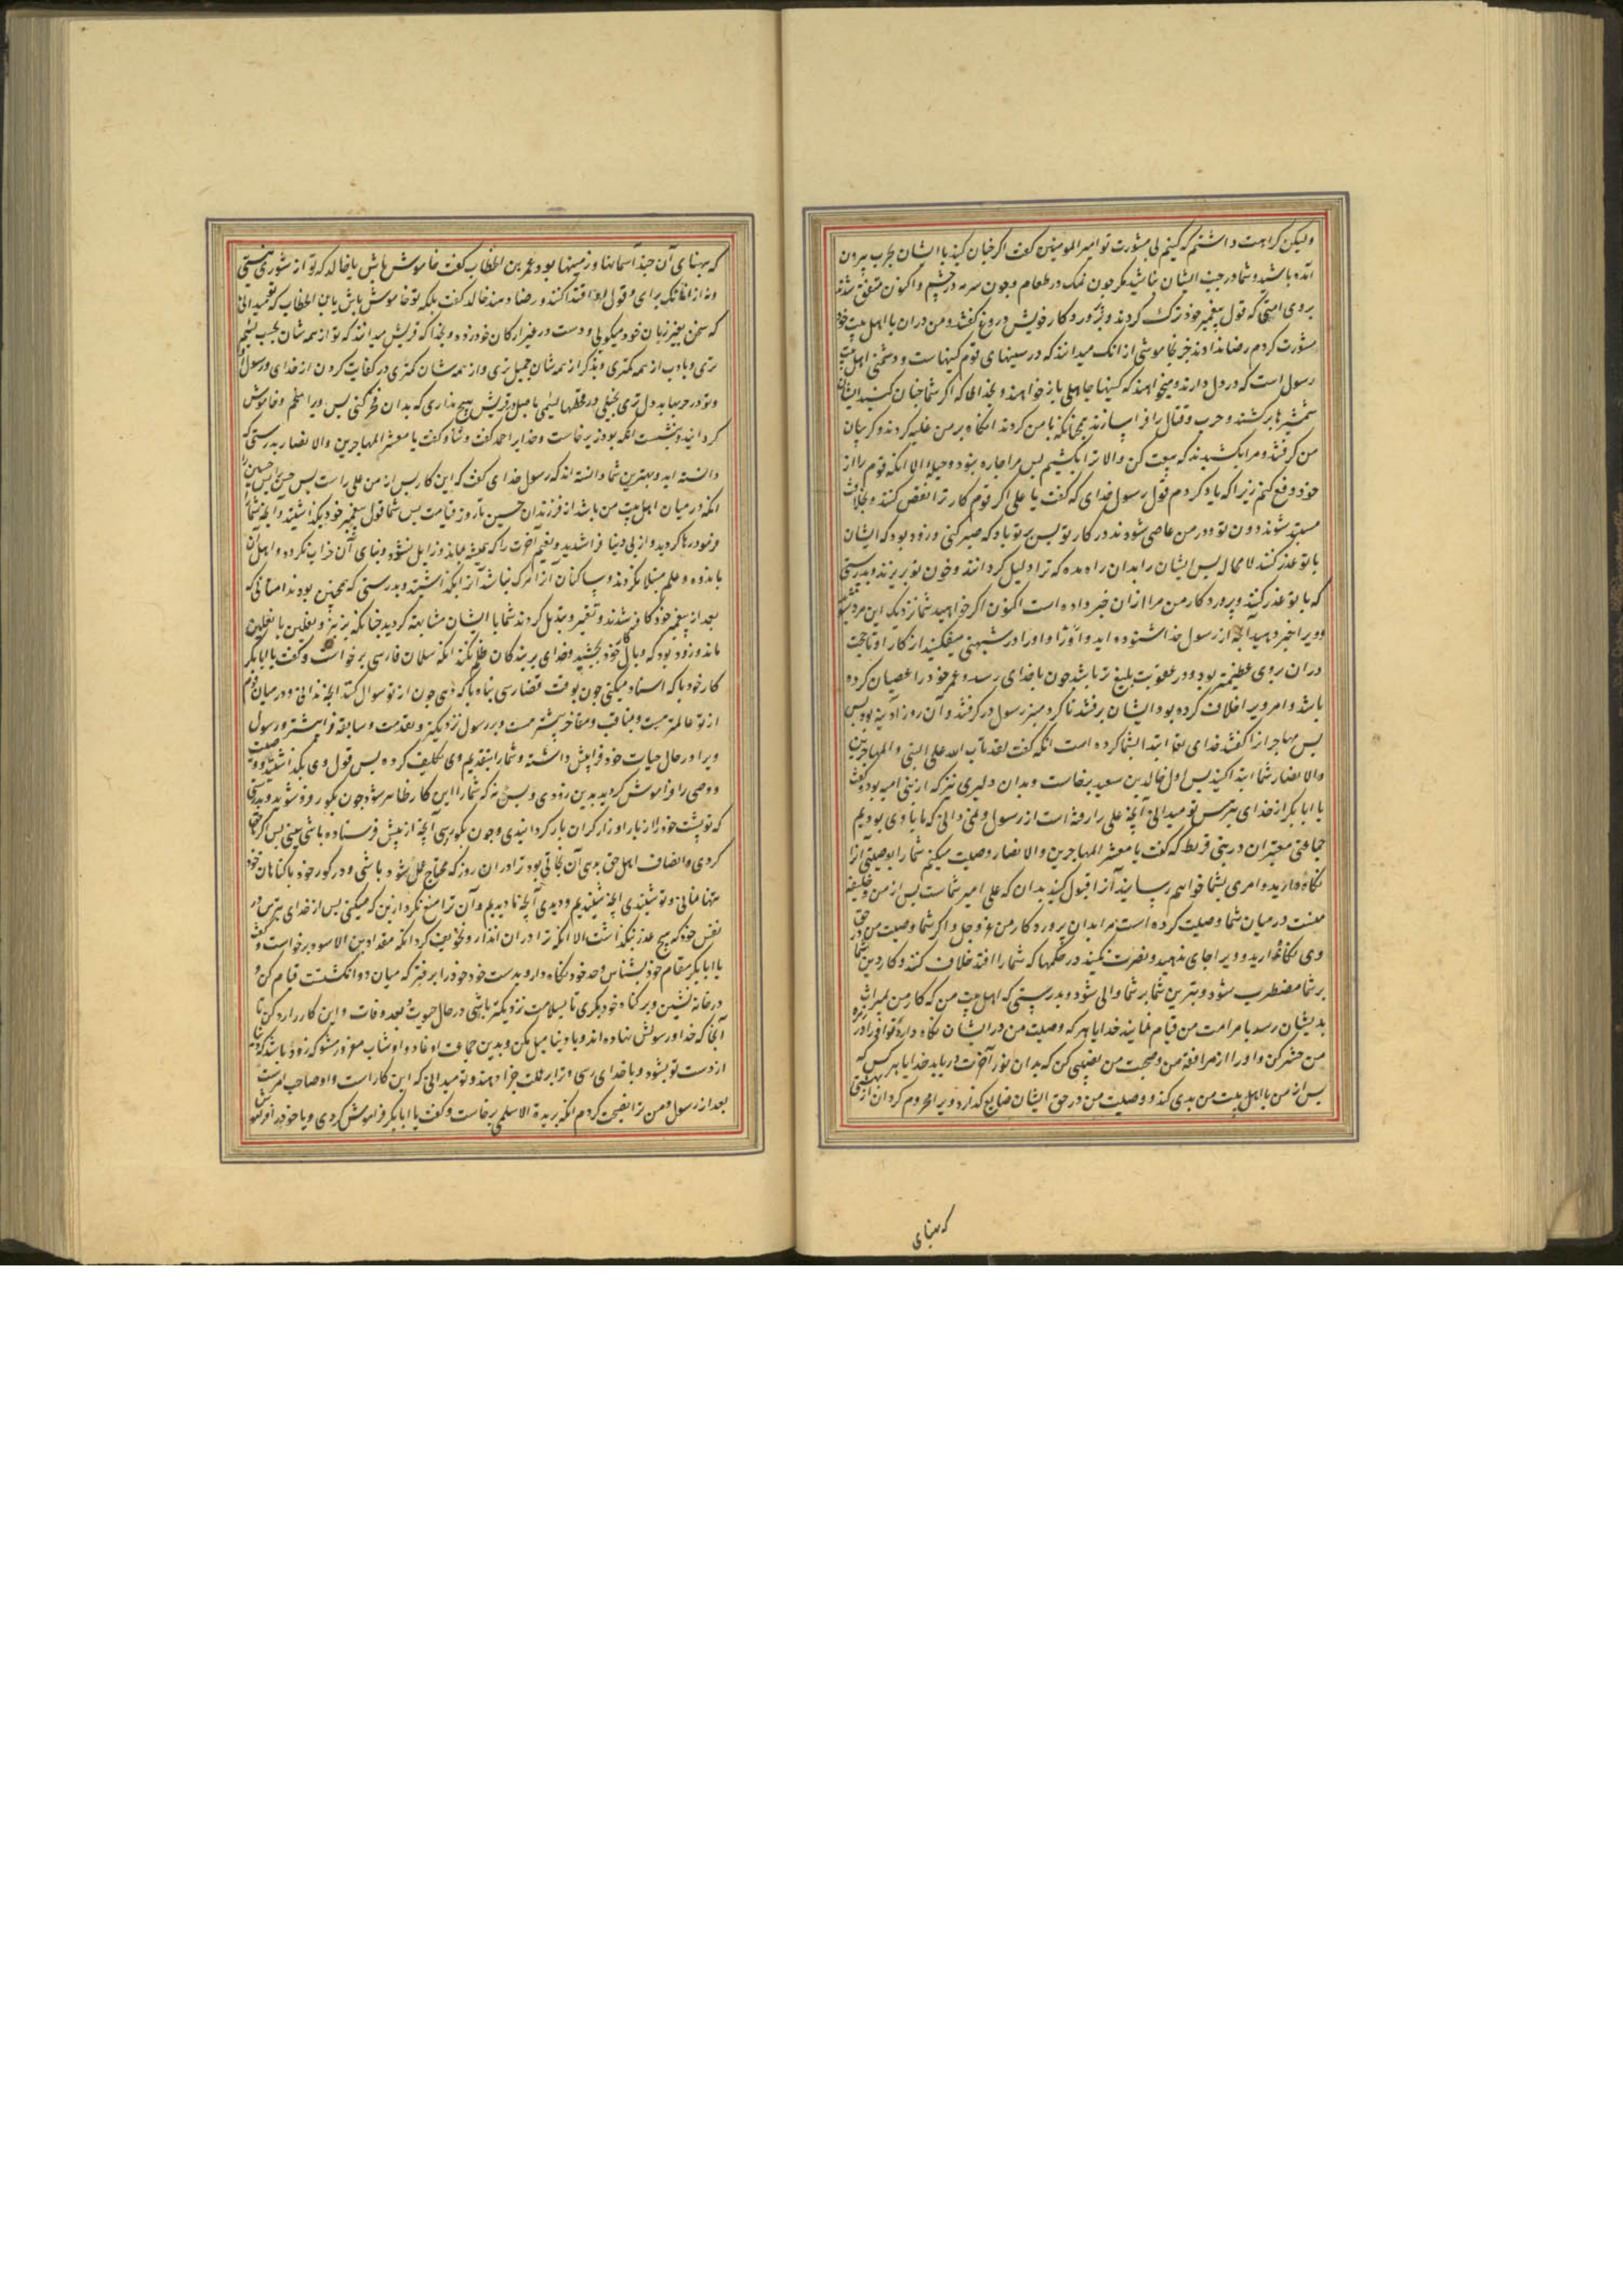 ولیکن کراهیت داشتم که کنیم بی مشورت تو امیر المومنین گفت اگر چنان کنید با ایشان بحرب بیرون
آمده باشید و شما در جنب ایشان نباشید مگر چون نمک در طعام و چون سرمه در چشم و اکنون متفق شدند
بر وی امتی که قول پیغمبر خود ترک کردند و بر پروردکار خویش دروغ گفتند و من دران با اهل بیت خود
مشورت کردم رضا ندادند جز بخاموشی از انک میدانند که در سینهای قوم کینهاست و دشمنی اهل بیت
رسول است که در دل دارند و میخواهند که کینها جاهلی باز خواهند و بخدای که اگر شما چنان کنید ایشان
شمشیرها برکشند و حرب و قتال را فرا سازند همچنانکه با من کردند انگاه بر من غلبه کردند و کریبان
من کرفتند و مرا بکشیدند که بیعت کن و الا ترا بکشیم پس مرا چاره نبود و حیله الا انکه قوم را از
خود دفع کنم زیرا که یاد کردم قول رسول خدای که گفت یا علی اگر قوم کار ترا نقض کنند و بخلافت
مستبد شوند دون تو و در من عاصی شوند در کار تو پس بر تو باد که صبر کنی و زود بود که ایشان
با تو غدر کنند لا محال پس ایشان را بدان راه مده که ترا دلیل کردانند و خون تو بریزند و بدرستی
که با تو غدر کنند و پروردکار من مرا ازان خبر داده است اکنون اگر خواهید شما نزدیک این مرد شوید
و ویرا خبر دهید آنچه از رسول خدا شنوده اید و او را در شبهتی میفکنید از کار او تا حجت
دران بر وی عظیمتر بود و در عقوبت بلیغ تر باشد چون با خدای رسد و عمر خود را عصیان کرده
باشد و امر ویرا خلاف کرده بود ایشان برفتند تا کرد منبر رسول در کرفتند و آن روز آدینه بود پس
پس مهاجر انرا گفتند خدای تعالی ابتدا بشما کرده است انکه گفت لقد تاب الله علی النبی و المهاجرین
والانصار شما ابتدا کنید پس اول خالد بن سعید برخاست و بدان دلیری تر که از بنی امیه بود و گفت
یا ابابکر از خدای بترس تو میدانی آنچه علی را رفته است از رسول و نمی دانی که ما با وی بودیم
جماعتی معتبران در بنی قریظه که گفت یا معشر المهاجرین والانصار وصیت میکنم شما را بوصیتی آنرا
نگاه دارید و امری بشما خواهم رسانید آنرا قبول کنید بدان که علی امیر شماست پس از من و خلیفه
منست در میان شما وصیت کرده است مرا بدان پروردکار من عز و جل و اگر شما وصیت من در حق
وی نگاه ندارید و ویرا جای ندهید و نصرت نکنید در حکمها که شما را افتد خلاف کنند و کار دین شما
بر شما مضطرب شود و بترین شما بر شما والی شود و بدرستی که اهل بیت من که کار من بمیراث
بدیشان رسد بامر امت من قیام نمایند خدایا هر که وصیت من در ایشان نگاه دارد تو او را در زمره
من حشر کن و او را از مرافقت من و صحبت من نصیبی کن که بدان نور آخرت دریابد خدایا هر کس که
پس از من با اهل بیت من بدی کند و وصیت من در حق ایشان ضایع کذارد ویرا محروم کردان از بهشتی
که بهنای
که پهنای آن چند آسمانها و زمینها بود عمر بن الخطاب گفت خاموش باش یا خالد که تو از شوری نیستی
و نه از انانک برای و قول او اقتدا کنند و رضا دهند خالد گفت بلکه تو خاموش باش یا بن الخطاب که تو میدانی
که سخن بغیر زبان خود میکویی و دست در غیر ارکان خود زده و بخدا که قریش میدانند که تو از همه شان بحسب لئیم
تری و بادب از همه کمتری و بذکر از همه شان خمیل تری و از همه شان کمتری در کفایت کردن از خدای و رسول او
و تو در حربها بد دل تری بخیلی در قحطها لئیمی باصل در قریش هیچ نداری که بدان فخر کنی پس ویرا ملجم و خاموش
کردانید و بنشست انکه بوذر برخاست و خدایرا حمد گفت و ثنا و گفت یا معشر المهاجرین والانصار بدرستی که
دانسته اید و بهترین شما دانسته اند که رسول خدای گفت که این کار پس از من علی راست پس حسن را پس حسین را
انکه در میان اهل بیت من باشد از فرزندان حسین تا روز قیامت پس شما قول پیغمبر خود بگذاشتید و آنچه شما را
فرمود رها کردید و از پی دنیا فرا شدید و نعیم آخرت را که همیشه بماند و زایل نشود و بنای آن خراب نکردد و اهل آن
باندوه و غم مبتلا نکردند و ساکنان آنرا مرک نباشد آنرا بگذاشتید و بدرستی که همچنین بودند امتانی که
بعد از پیغمبر خود کافر شدند و تغییر و بتدیل کردند شما با ایشان مشابهت کردید چنانکه تیر بتیر و نعلین با نعلین
ماند و زود بود که وبال کار خود بچشید و خدای بر بندکان ظلم نکند انکه سلمان فارسی برخواست و گفت یا ابابکر
کار خود با که اسناد میکنی چون بوقت قضا رسی پناه با که دهی چون از تو سوال کنند آنچه ندانی و در میان قوم
از تو عالمتر هست و مناقب و مفاخر بیشتر هست و برسول نزدیکتر و بقدمت و سابقه فرا پیشتر و رسول
ویرا در حال حیات خود فرا پیش داشته و شما را بتقدیم وی تکلیف کرده پس قول وی بگذاشتید و وصیت
و وصی را فراموش کردید بدین زودی و پس نه که شما را این کار ظاهر شود چون بکور فرو شوید و بدرستی
که تو پشت خود را از بار اوزار کران بار کردانیدی و چون بکور رسی آنچه از پیش فرستاده باشی ببینی پس اگر بحق
کردی و انصاف اهل حق بدهی آن نجاتی بود ترا دران روز که محتاج عمل شوی باشی و در کور خود با کناهان خود
تنها مانی و تو شنیدی آنچه شنیدیم و دیدی آنچه ما دیدیم و آن ترا منع نکرد ازین که میکنی پس از خدای بترس در
نفس خود که هیچ عذر نبگذاشت الا انکه ترا دران انذار و تخویف کرد انکه مقداد بن الاسود برخواست و گفت
یا ابابکر مقام خود بشناس و حد خود نگاه دار و بدست خود خود را بر فتر که میان دو انکشتت قیام کن و
در خانه نشین و بر کناه خود بگری تا بسلامت نزدیکتر باشی در حال حیوت و بعد وفات و این کار را رد کن تا
آنجا که خدا و رسولش نهاده اند و با دنیا میل مکن و بدین جماعت اوغاد و اوشاب مغرور مشو که زود باشد که دنیا
از دست تو بشود و با خدای رسی و ترا بر عملت جزا دهند و تو میدانی که این کار است و او صاحب امرست
بعد از رسول و من ترا نصیحت کردم انکه بریدة الاسلمی برخاست و گفت یا ابابکر فراموش کردی و یا خود را فراموش